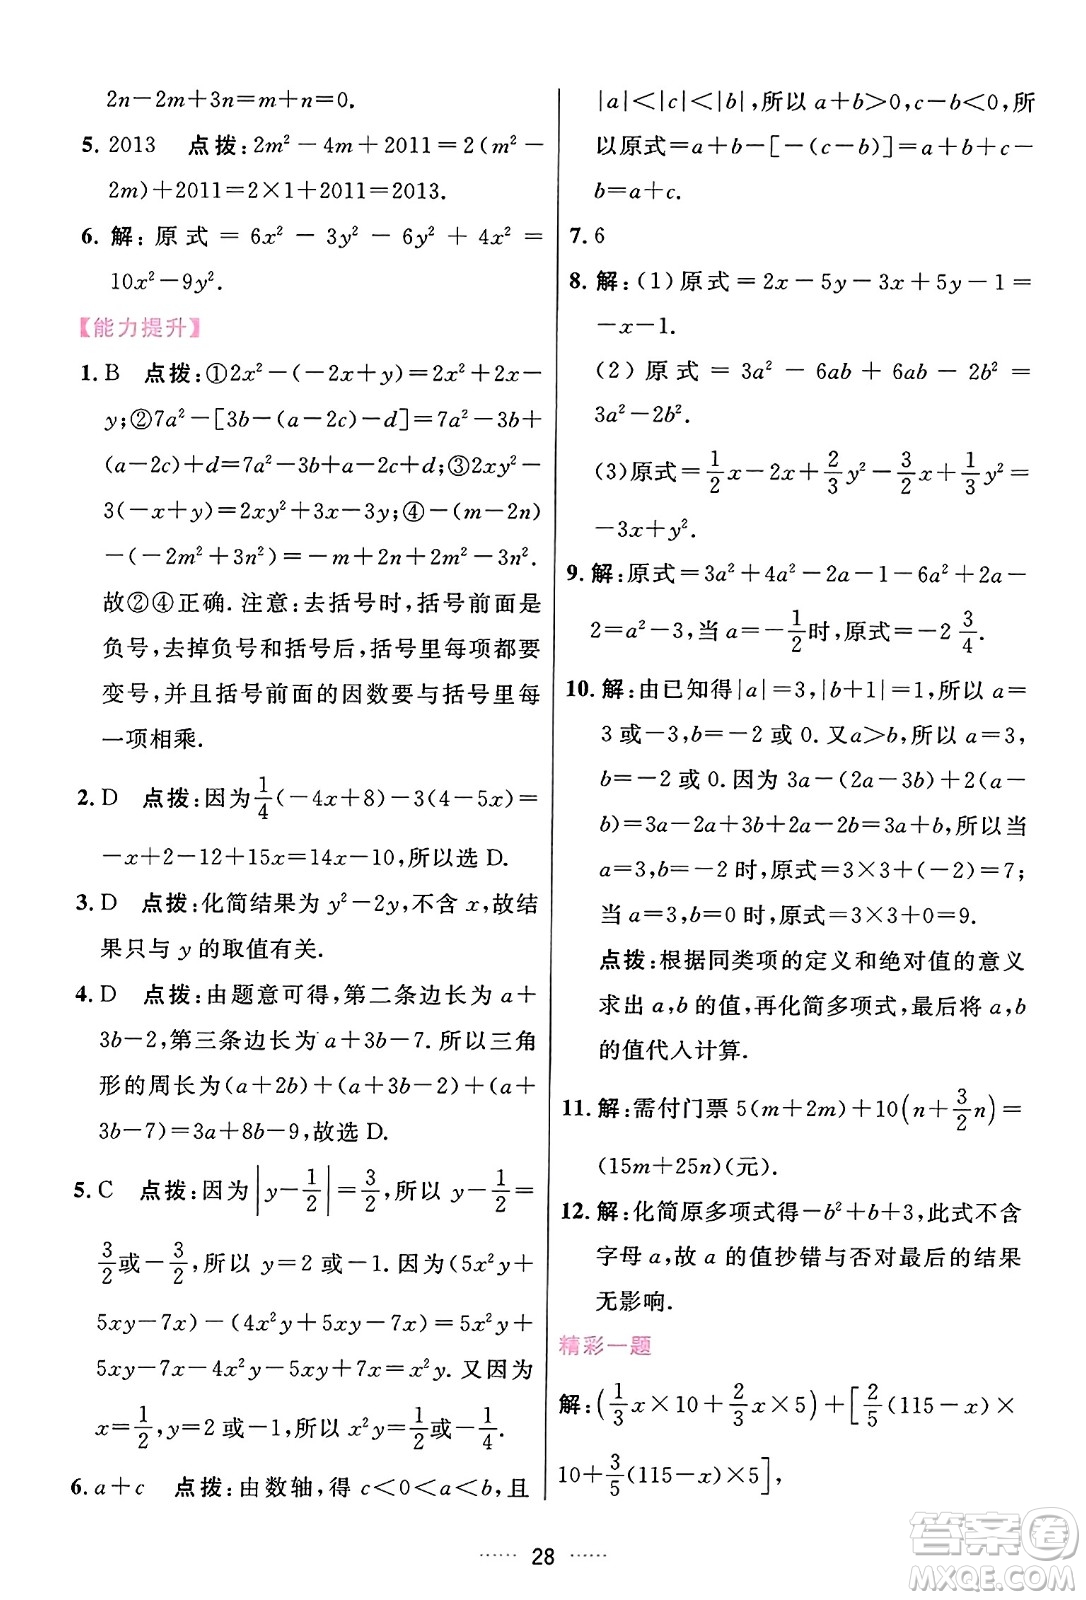 2n－2m＋3n＝m＋n＝0.
5. 2013　点拨：2m²－4m＋2011＝2(m²－
2m)＋2011＝2×1＋2011＝2013.
6. 解：原式＝6x²－3y²－6y²＋4x²＝
10x²－9y².
【能力提升】
1. B　点拨：①2x²－(－2x＋y)＝2x²＋2x－
y；②7a²－[3b－(a－2c)－d]＝7a²－3b＋
(a－2c)＋d＝7a²－3b＋a－2c＋d；③2xy²－
3(－x＋y)＝2xy²＋3x－3y；④－(m－2n)
－(－2m²＋3n²)＝－m＋2n＋2m²－3n².
故②④正确. 注意：去括号时，括号前面是
负号，去掉负号和括号后，括号里每项都要
变号，并且括号前面的因数要与括号里每
一项相乘.
2. D　点拨：因为1/4(－4x＋8)－3(4－5x)＝
－x＋2－12＋15x＝14x－10，所以选 D.
3. D　点拨：化简结果为 y²－2y，不含 x，故结
果只与 y 的取值有关.
4. D　点拨：由题意可得，第二条边长为 a＋
3b－2，第三条边长为 a＋3b－7. 所以三角
形的周长为(a＋2b)＋(a＋3b－2)＋(a＋
3b－7)＝3a＋8b－9，故选 D.
5. C　点拨：因为|y－1/2|＝3/2，所以 y－1/2＝
3/2或－3/2，所以 y＝2 或－1. 因为(5x²y＋
5xy－7x)－(4x²y＋5xy－7x)＝5x²y＋
5xy－7x－4x²y－5xy＋7x＝x²y. 又因为
x＝1/2，y＝2 或－1，所以 x²y＝1/2或－1/4.
6. a＋c　点拨：由数轴，得 c＜0＜a＜b，且
|a|＜|c|＜|b|，所以 a＋b＞0，c－b＜0，所
以原式＝a＋b－[－(c－b)]＝a＋b＋c－
b＝a＋c.
7. 6
8. 解：(1)原式＝2x－5y－3x＋5y－1＝
－x－1.
(2)原式＝3a²－6ab＋6ab－2b²＝
3a²－2b².
(3)原式＝1/2x－2x＋2/3y²－3/2x＋1/3y²＝
－3x＋y².
9. 解：原式＝3a²＋4a²－2a－1－6a²＋2a－
2＝a²－3，当 a＝－1/2时，原式＝－2 3/4.
10. 解：由已知得|a|＝3，|b＋1|＝1，所以 a＝
3 或－3，b＝－2 或 0. 又a＞b，所以 a＝3，
b＝－2 或 0. 因为 3a－(2a－3b)＋(2a－
b)＝3a－2a＋3b＋2a－2b＝3a＋b，所以当
a＝3，b＝－2 时，原式＝3×3＋(－2)＝7；
当 a＝3，b＝0 时，原式＝3×3＋0＝9.
点拨：根据同类项的定义和绝对值的意义
求出 a，b 的值，再化简多项式，最后将 a，b
的值代入计算.
11. 解：需付门票 5(m＋2m)＋10(n＋3/2n)＝
(15m＋25n)(元).
12. 解：化简原多项式得－b²＋b＋3，此式不含
字母 a，故 a 的值抄错与否对最后的结果
无影响.
精彩一题
解：(1/3x×10＋2/3x×5)＋[2/5(115－x)×
10＋3/5(115－x)×5]，
28
答案圈
MXQE.COM